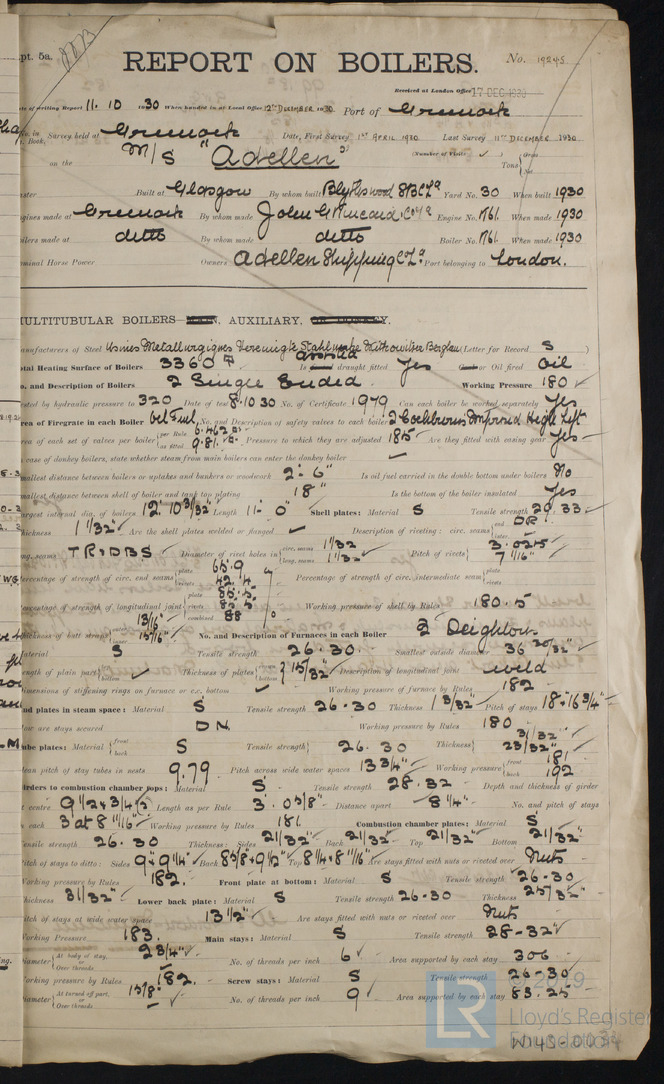 pt. 5a.
REPORT ON BOILERS.
No. 19245
Received at London Office 17 DEC 1930
of writing Report 11. 10 1930 When handed in at Local Office 12th DECEMBER 1930 Port of Greenock
Survey held at Greenock Date, First Survey 1ST APRIL 1930 Last Survey 11TH DECEMBER 1930
Book.
on the M/S "Adellen" (Number of Visits ) Tons
Built at Glasgow By whom built Blythswood SBCLd Yard No. 30 When built 1930
gines made at Greenock By whom made John G Kincaid Co Ld Engine No. 1761. When made 1930
ilers made at ditto By whom made ditto Boiler No. 1761. When made 1930
minal Horse Power Owners Adellen Shipping Co Ld Port belonging to London.
ULTITUBULAR BOILERS MAIN, AUXILIARY,
anufacturers of Steel Usines Metallurgiques Vereinigte Stahlwerke (Letter for Record S
otal Heating Surface of Boilers 3360 Is forced draught fitted Yes Coal or Oil fired Oil
o. and Description of Boilers 2 Single Ended. Working Pressure 180
ested by hydraulic pressure to 320 Date of test 8.10 30 No. of Certificate 1979 Can each boiler be worked separately Yes
rea of Firegrate in each Boiler Oil Fuel No. and Description of safety valves to each boiler 2 Cockburns Improved High Lift
rea of each set of valves per boiler per Rule 6.462 as fitted 9.81 Pressure to which they are adjusted 185 Are they fitted with easing gear Yes
case of donkey boilers, state whether steam from main boilers can enter the donkey boiler
mallest distance between boilers or uptakes and bunkers or woodwork 2'- 6" Is oil fuel carried in the double bottom under boilers No
mallest distance between shell of boiler and tank top plating 18" Is the bottom of the boiler insulated Yes
argest internal dia. of boilers 12' 10 3/32" Length 11'- 0" Shell plates: Material S Tensile strength 29.33
hickness 1 1/32" Are the shell plates welded or flanged Description of riveting: circ. seams end DR
ong. seams TRDBS Diameter of rivet holes in circ. seams 1 1/32 long. seams 1 1/32 Pitch of rivets 3.025 7 1/16"
ercentage of strength of circ. end seams plate 65.9 rivets 42.4 Percentage of strength of circ. intermediate seam plate rivets
ercentage of strength of longitudinal joint plate 85.5 rivets combined 88 Working pressure of shell by Rules 180.5
hickness of butt straps outer 13/16" inner 15/16" No. and Description of Furnaces in each Boiler 2 Deighton
aterial S Tensile strength 26.30 Smallest outside diameter 36 20/32"
ength of plain part bottom Thickness of plates bottom 15/32" Description of longitudinal joint weld
imensions of stiffening rings on furnace or c.c. bottom Working pressure of furnace by Rules 182
nd plates in steam space: Material S Tensile strength 26-30 Thickness 1 3/32" Pitch of stays 18-16 3/4"
ow are stays secured DN. Working pressure by Rules 180
ube plates: Material front back S Tensile strength 26. 30 Thickness 31/32" 23/32"
ean pitch of stay tubes in nests 9.79 Pitch across wide water spaces 13 3/4" Working pressure front 181 back 192
irders to combustion chamber tops: Material S Tensile strength 28.32 Depth and thickness of girder
t centre 9 1/2 x 3/4 (2) Length as per Rule 3'. 0 3/8" Distance apart 8 1/4" No. and pitch of stays
n each 3 at 8 11/16" Working pressure by Rules 181 Combustion chamber plates: Material S
ensile strength 26. 30 Thickness: Sides 21/32" Back 21/32" Top 21/32" Bottom 21/32"
itch of stays to ditto: Sides 9 x 9 1/4" Back 8 5/8 x 9 1/2" Top 8 1/4 x 8 11/16" Are stays fitted with nuts or riveted over Nuts
orking pressure by Rules 182. Front plate at bottom: Material S Tensile strength 26-30
hickness 31/32" Lower back plate: Material S Tensile strength 26-30 Thickness 25/32"
itch of stays at wide water space 13 1/2" Are stays fitted with nuts or riveted over Nuts
orking Pressure 183. Main stays: Material S Tensile strength 28-32
iameter At body of stay, Over threads 2 3/4" No. of threads per inch 6 Area supported by each stay 306
orking pressure by Rules 182. Screw stays: Material S Tensile strength 26-30
iameter At turned off part, Over threads 1 5/8" No. of threads per inch 9 Area supported by each stay 83.25
© 2019
LR
Lloyd's Register
Foundation
W143-0034